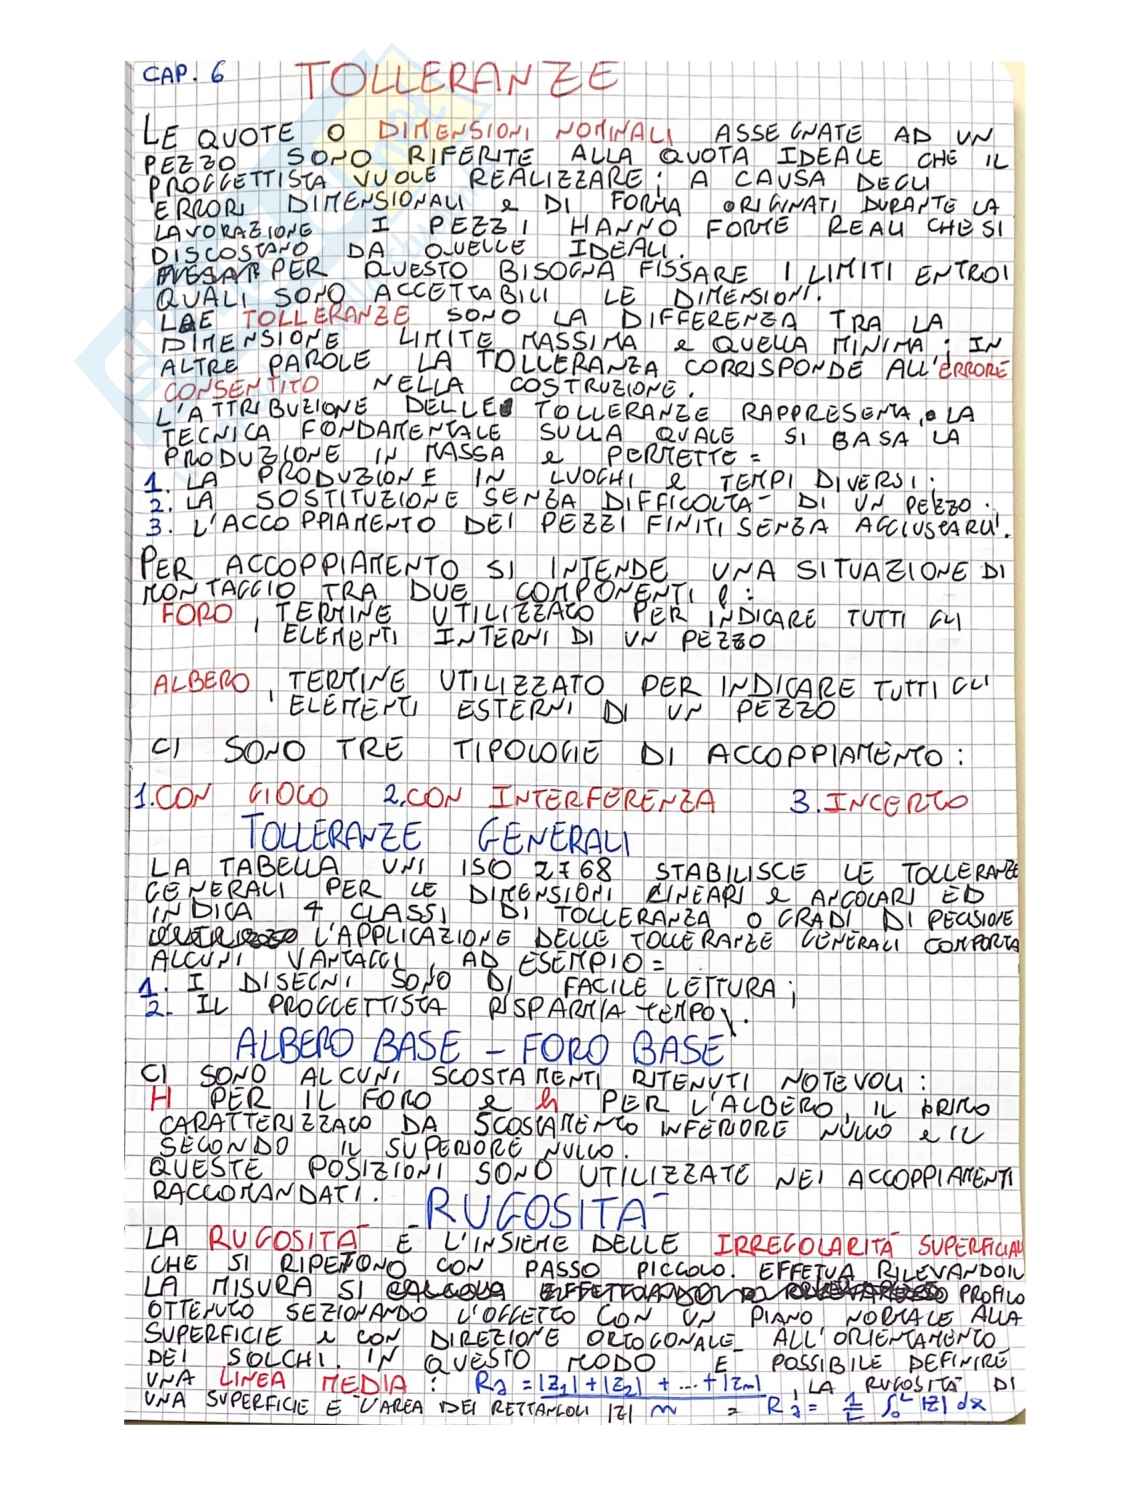 CAP. 6 TOLLERANZE
LE QUOTE O DIMENSIONI NOMINALI ASSEGNATE AD UN
PEZZO SONO RIFERITE ALLA QUOTA IDEALE CHE IL
PROGGETTISTA VUOLE REALIZZARE; A CAUSA DEGLI
ERRORI DIMENSIONALI e DI FORMA ORIGINATI DURANTE LA
LAVORAZIONE I PEZZI HANNO FORME REALI CHE SI
DISCOSTANO DA QUELLE IDEALI.
PER QUESTO BISOGNA FISSARE I LIMITI ENTRO I
QUALI SONO ACCETTABILI LE DIMENSIONI.
LE TOLLERANZE SONO LA DIFFERENZA TRA LA
DIMENSIONE LIMITE MASSIMA e QUELLA MINIMA; IN
ALTRE PAROLE LA TOLLERANZA CORRISPONDE ALL'ERRORE
CONSENTITO NELLA COSTRUZIONE.
L'ATTRIBUZIONE DELLE TOLLERANZE RAPPRESENTA LA
TECNICA FONDAMENTALE SULLA QUALE SI BASA LA
PRODUZIONE IN MASSA e PERMETTE:
1. LA PRODUZIONE IN LUOGHI e TEMPI DIVERSI;
2. LA SOSTITUZIONE SENZA DIFFICOLTA' DI UN PEZZO;
3. L'ACCOPPIAMENTO DEI PEZZI FINITI SENZA AGGIUSTARLI.
PER ACCOPPIAMENTO SI INTENDE UNA SITUAZIONE DI
MONTAGGIO TRA DUE COMPONENTI :
FORO, TERMINE UTILIZZATO PER INDICARE TUTTI GLI
ELEMENTI INTERNI DI UN PEZZO
ALBERO, TERMINE UTILIZZATO PER INDICARE TUTTI GLI
ELEMENTI ESTERNI DI UN PEZZO
CI SONO TRE TIPOLOGIE DI ACCOPPIAMENTO:
1. CON GIOCO 2. CON INTERFERENZA 3. INCERTO
TOLLERANZE GENERALI
LA TABELLA UNI ISO 2768 STABILISCE LE TOLLERANZE
GENERALI PER LE DIMENSIONI LINEARI e ANGOLARI ED
INDICA 4 CLASSI DI TOLLERANZA O GRADI DI PECISIONE
L'APPLICAZIONE DELLE TOLLERANZE GENERALI COMPORTA
ALCUNI VANTAGGI, AD ESEMPIO:
1. I DISEGNI SONO DI FACILE LETTURA;
2. IL PROGGETTISTA RISPARMIA TEMPO.
ALBERO BASE - FORO BASE
CI SONO ALCUNI SCOSTAMENTI RITENUTI NOTEVOLI:
H PER IL FORO e h PER L'ALBERO, IL PRIMO
CARATTERIZZATO DA SCOSTAMENTO INFERIORE NULLO e IL
SECONDO IL SUPERIORE NULLO.
QUESTE POSIZIONI SONO UTILIZZATE NEI ACCOPPIAMENTI
RACCOMANDATI.
RUGOSITA'
LA RUGOSITA' E' L'INSIEME DELLE IRREGOLARITA' SUPERFICIALI
CHE SI RIPETONO CON PASSO PICCOLO. EFFETUA RILEVANDO IL
LA MISURA SI PROFILO
OTTENUTO SEZIONANDO L'OGGETTO CON UN PIANO NORMALE ALLA
SUPERFICIE e CON DIREZIONE ORTOGONALE ALL'ORIENTAMENTO
DEI SOLCHI. IN QUESTO MODO E' POSSIBILE DEFINIRE
UNA LINEA MEDIA: Ra = |Z1|+|Z2| + ... + |Zm| , LA RUGOSITA' DI
UNA SUPERFICIE E' L'AREA DEI RETTANGOLI |Z| m = Ra = 1/L ∫₀ᴸ |Z| dx